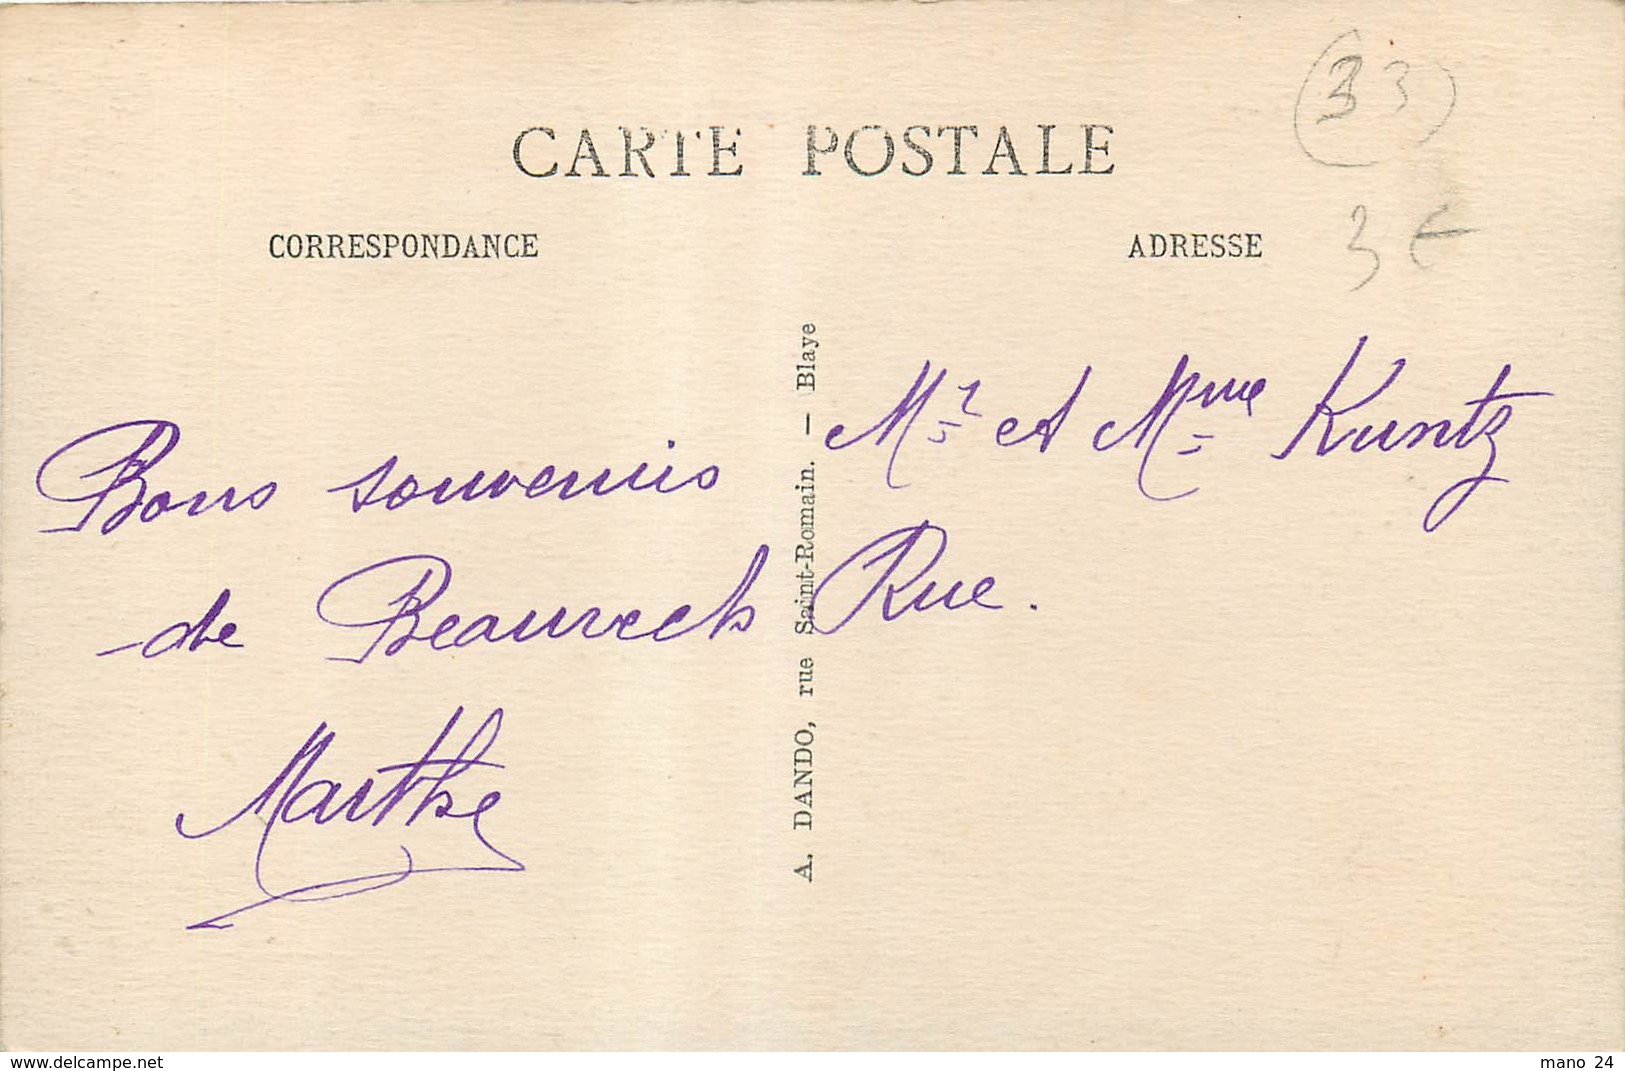 CARTE POSTALE
(33)
CORRESPONDANCE
ADRESSE
3 €
Bons souvenirs
de
Marthe
A. DANDO, rue Saint-Romain. — Blaye
Mr et Mme Kuntz
Rue.
www.delcampe.net
mano_24